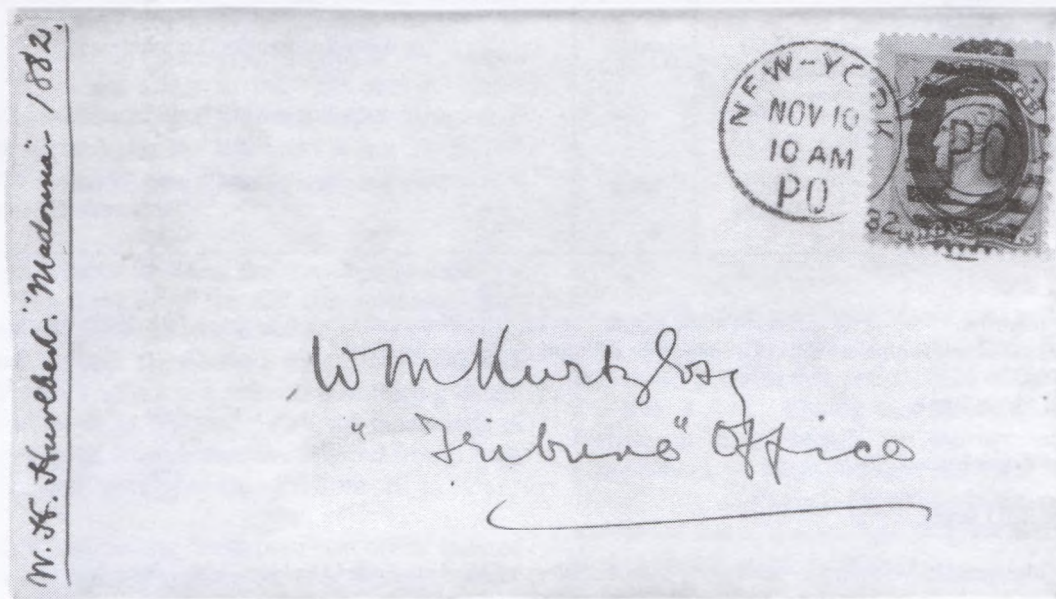 W. H. Hurlbert. "Madonna" - 1882.
NEW-YORK
NOV 10
10 AM
PO
32
PO
Wm Kurtz Esq
"Tribune" Office